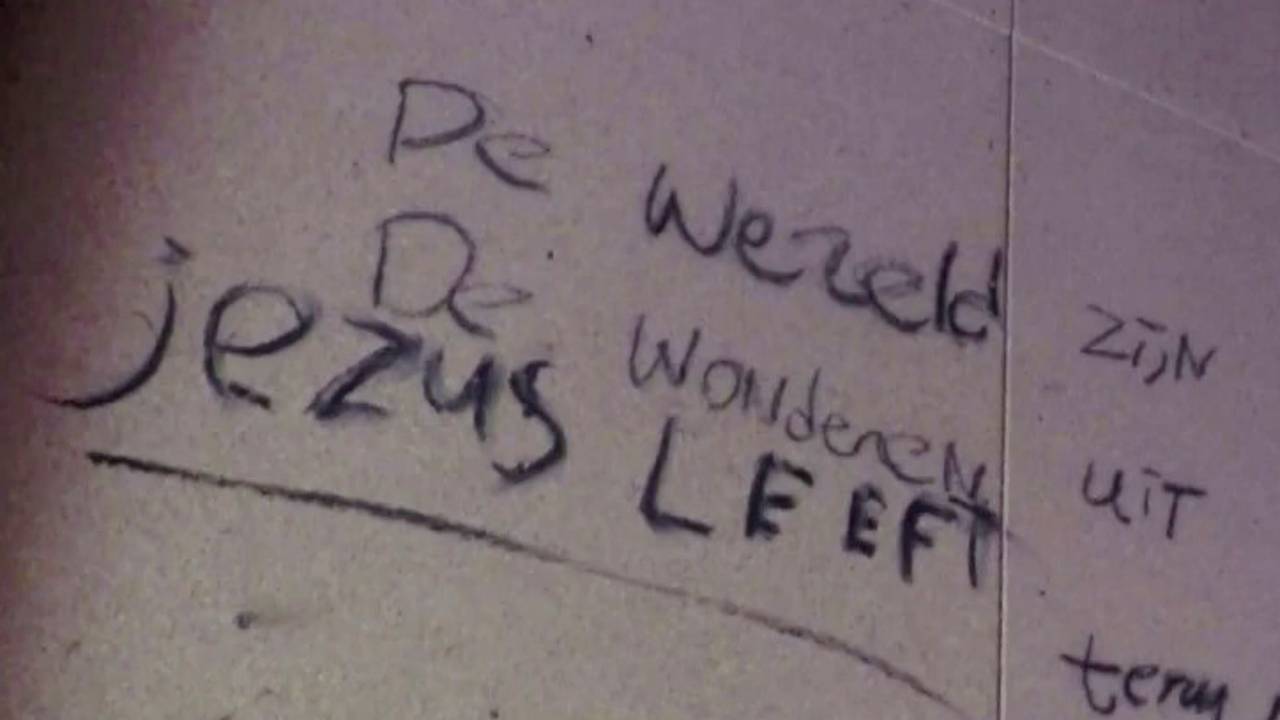 De Wezeld zijn
De Wonderen uit
jezus LEEFT